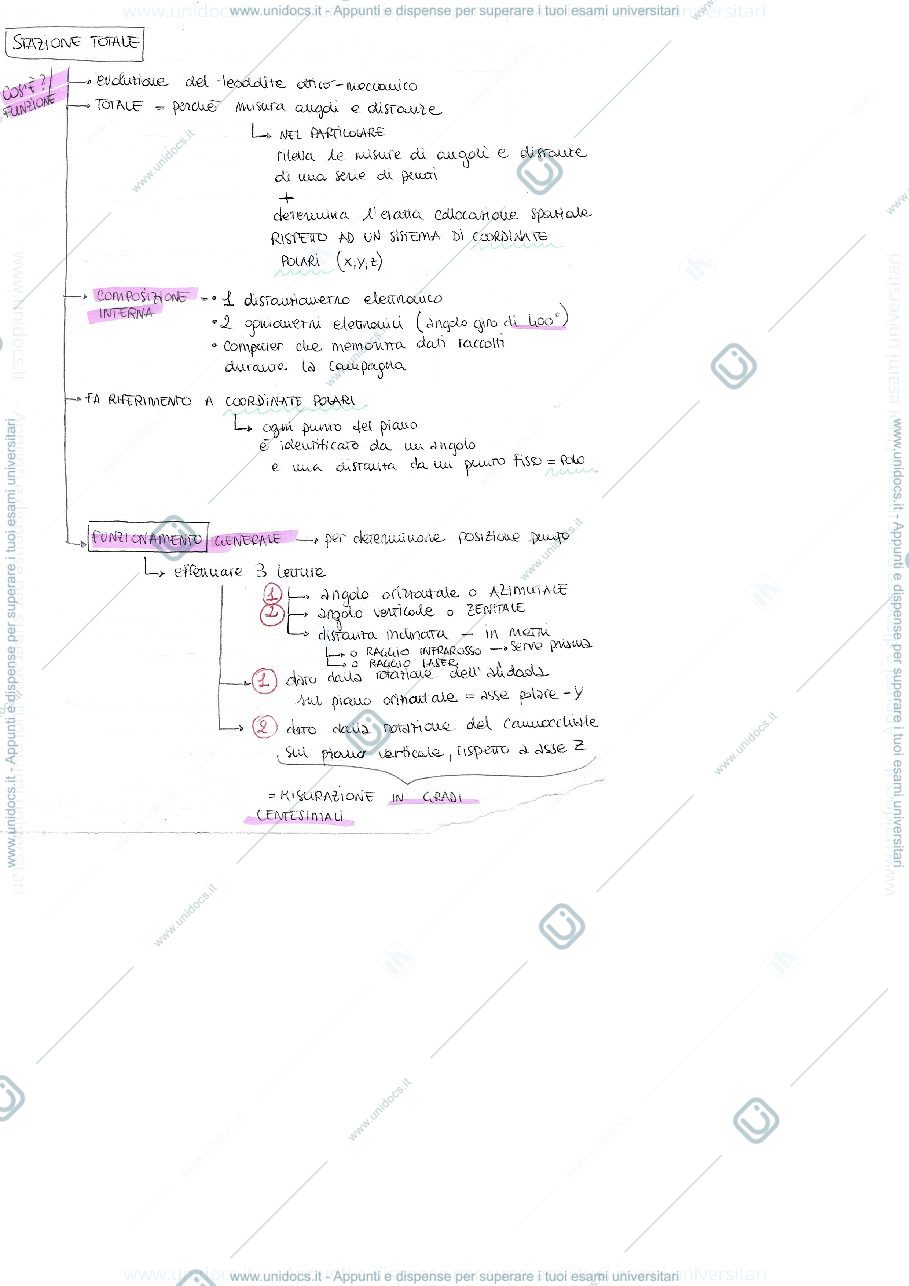 www.unidocs.it - Appunti e dispense per superare i tuoi esami universitari
STAZIONE TOTALE
COS'È?/
FUNZIONE
→ evoluzione del teodolite ottico-meccanico
→ TOTALE = perché misura angoli e distanze
↳ NEL PARTICOLARE
rileva le misure di angoli e distanze
di una serie di punti
+
determina l'esatta collocazione spaziale
RISPETTO AD UN SISTEMA DI COORDINATE
POLARI (x,y,z)
→ COMPOSIZIONE
INTERNA
• 1 distanziometro elettronico
• 2 goniometri elettronici (angolo giro di 400°)
• computer che memorizza dati raccolti
durante la campagna
→ FA RIFERIMENTO A COORDINATE POLARI
↳ ogni punto del piano
è identificato da un angolo
e una distanza da un punto fisso = POLO
→ FUNZIONAMENTO GENERALE → per determinare posizione punto
↳ effettuare 3 letture
1 → angolo orizzontale o AZIMUTALE
2 → angolo verticale o ZENITALE
→ distanza inclinata – in metri
↳ o RAGGIO INFRAROSSO → serve prisma
↳ o RAGGIO LASER
→ 1 dato dalla rotazione dell'alidada
sul piano orizzontale = asse polare - y
→ 2 dato dalla rotazione del cannocchiale
sul piano verticale, rispetto a asse z
= MISURAZIONE IN GRADI
CENTESIMALI
www.unidocs.it - Appunti e dispense per superare i tuoi esami universitari
www.unidocs.it - Appunti e dispense per superare i tuoi esami universitari
www.unidocs.it
www.unidocs.it
www.unidocs.it
www.unidocs.it
www.unidocs.it
www.unidocs.it - Appunti e dispense per superare i tuoi esami universitari